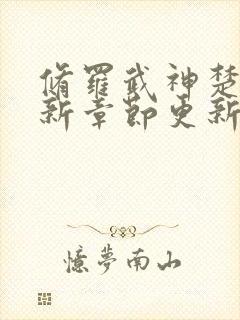 脩罗武神楚
新章節更新
憶夢南山